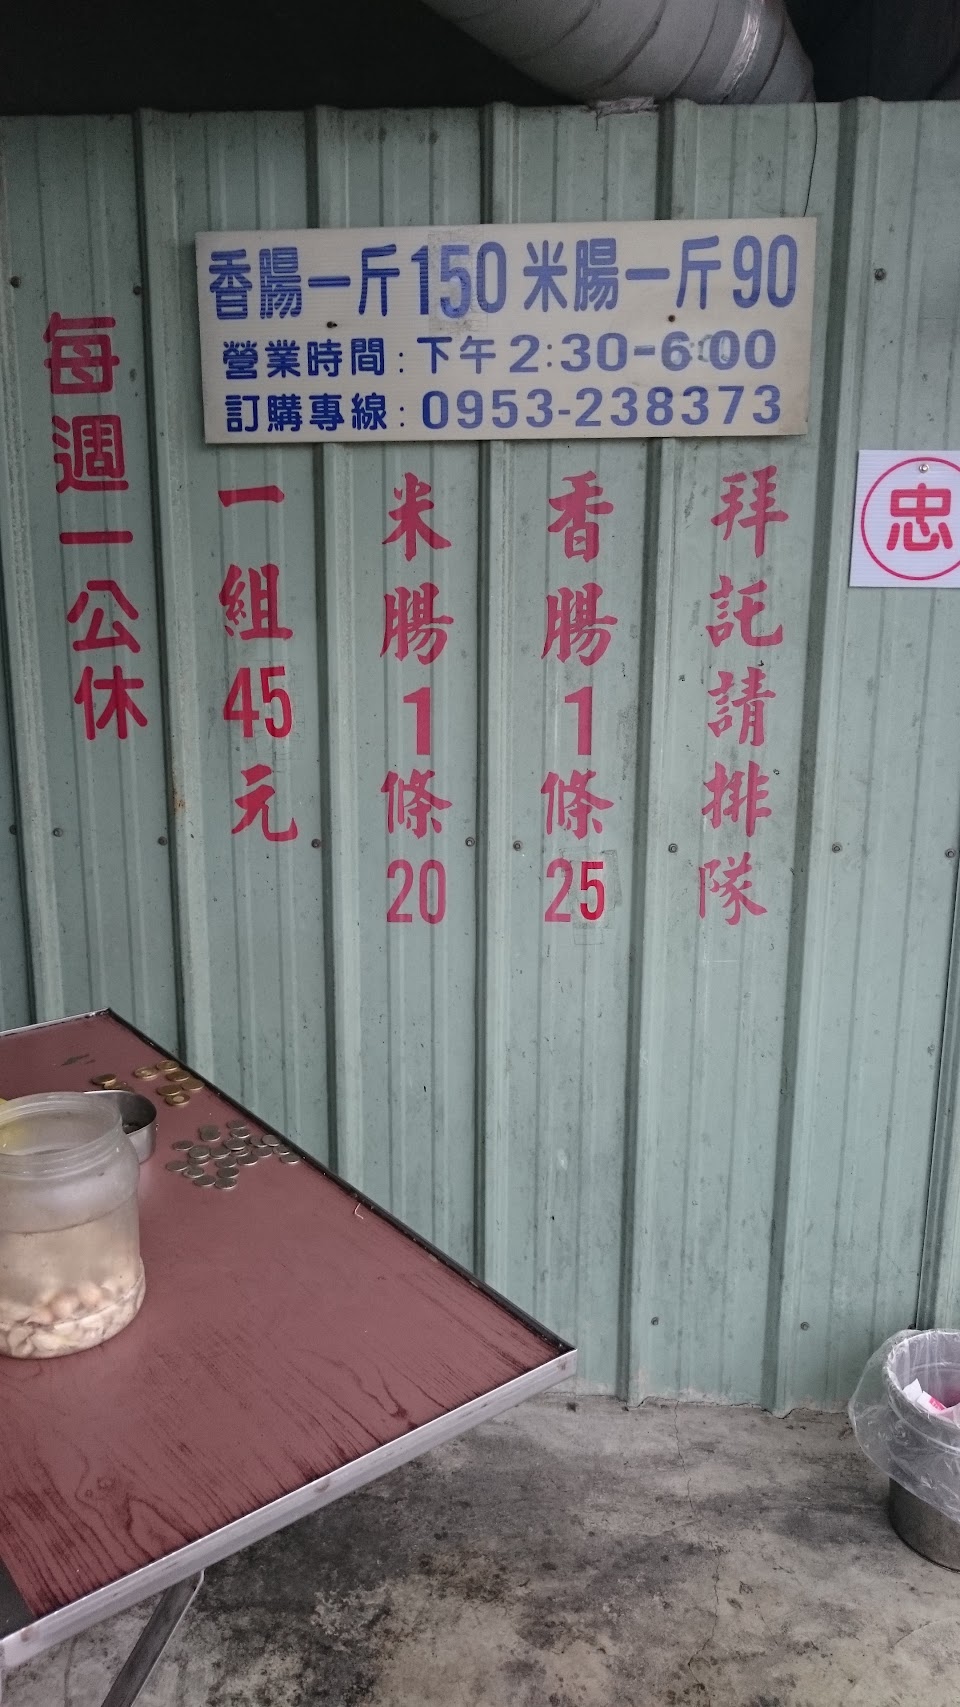 香腸一斤150 米腸一斤90
營業時間：下午2:30-6:00
訂購專線：0953-238373
拜託請排隊
香腸1條25
米腸1條20
一組45元
每週一公休
忠